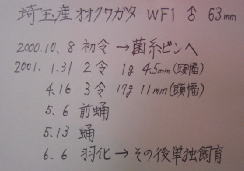 埼玉産オオクワガタ WF1 ♂ 63mm
2000.10.8 初令→菌糸ビンへ
2001.1.31 2令 1g 4.5mm(頭幅)
4.16 3令 17g 11mm(頭幅)
5.6 前蛹
5.13 蛹
6.6 羽化→その後単独飼育